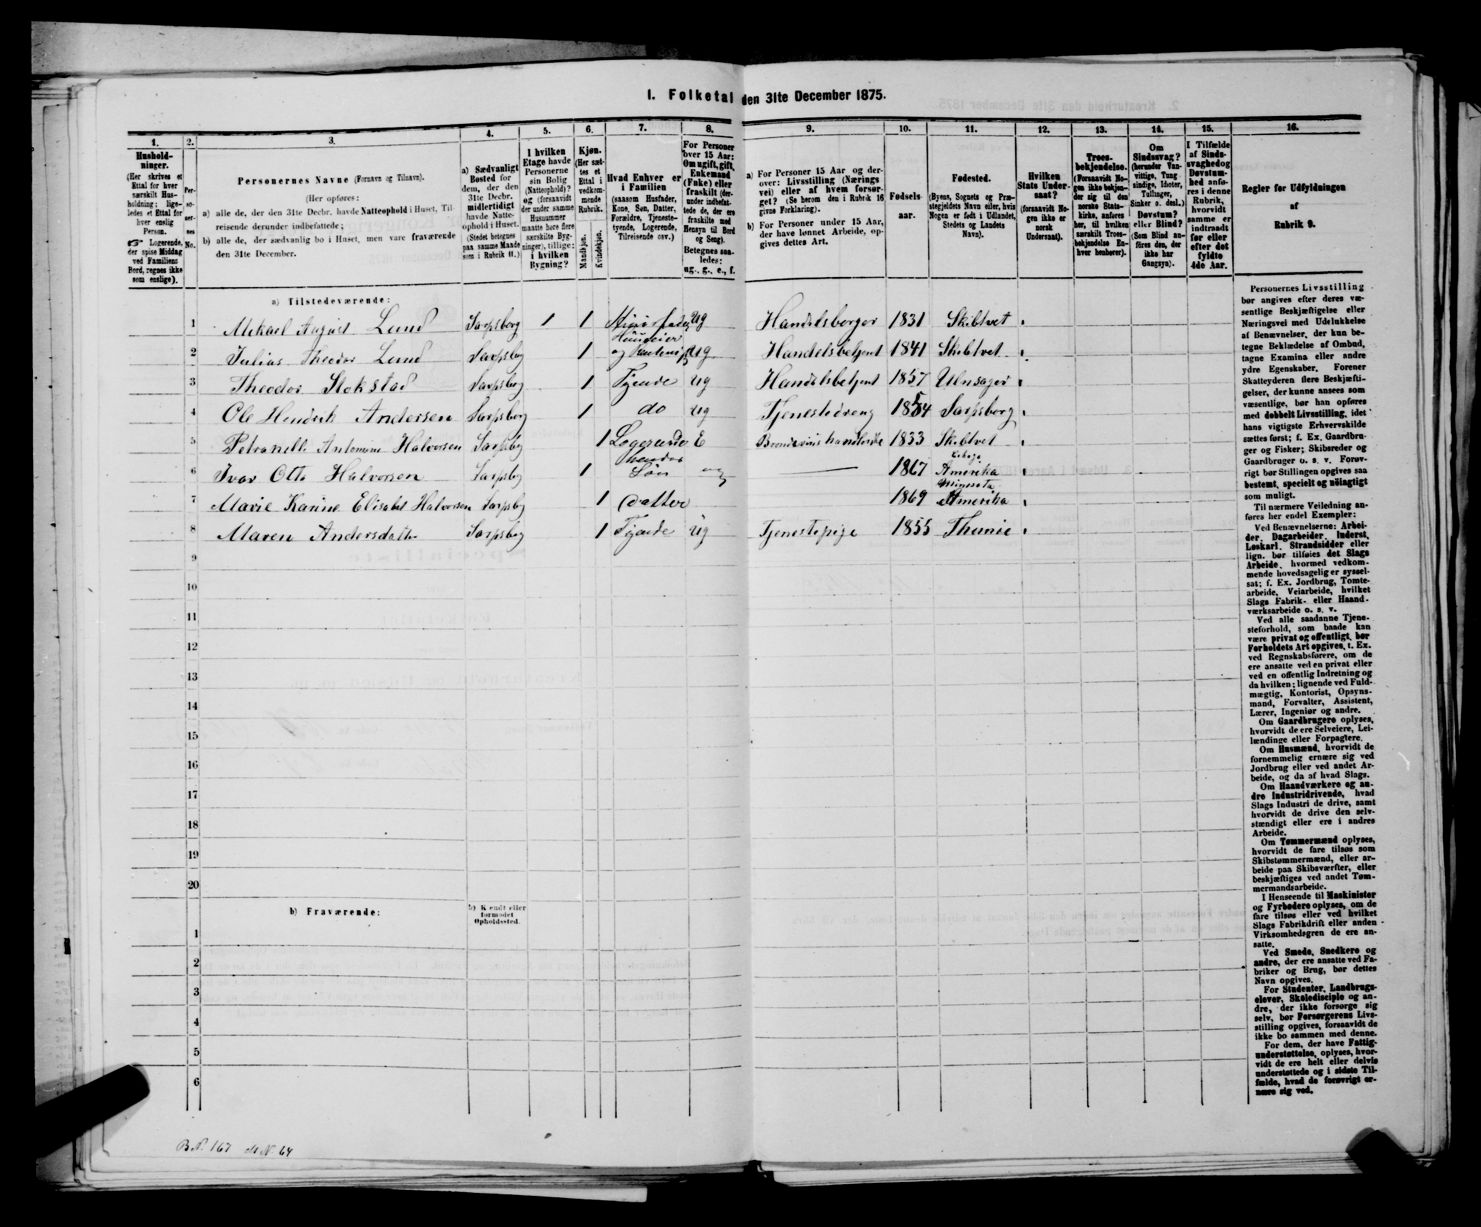 1. Folketal den 31te December 1875.
1. 2. 3. 4. 5. 6. 7. 8. 9. 10. 11. 12. 13. 14. 15. 16.
Husholdninger.
(Her skrives et
Ettal for hver
særskilt Husholdning;
ligeledes et Ettal for
hver enslig
Person.
Logerende,
der spise Middag
ved Familiens
Bord, regnes ikke
som enslige).
Personernes No.
Personernes Navne (Fornavn og Tilnavn).
(Her opføres:
a) alle de, der den 31te Decbr. havde Natteophold i Huset, Tilreisende derunder indbefattede;
b) alle de, der sædvanlig bo i Huset, men vare fraværende
den 31te December.
a) Sædvanligt
Bosted for
dem, der den
31te Decbr.
midlertidigt
havde Natteophold i Huset.
(Stedet betegnes
paa samme Maade
som i Rubrik 11.)
I hvilken
Etage havde
Personerne
sin Bolig
(Natteophold)?
og (forsaavidt
der under samme
Husnummer
maatte høre flere
særskilte Bygninger), tillige:
i hvilken
Bygning?
Kjøn.
(Her sættes et
Ettal i
vedkommende
Rubrik.)
Mandkjøn.
Kvindekjøn.
Hvad Enhver er
i Familien
(saasom Husfader,
Kone, Søn, Datter,
Forældre, Tjenestetyende, Logerende,
Tilreisende osv.)
For Personer
over 15 Aar:
Om ugift, gift,
Enkemand
(Enke) eller
fraskilt (derunder indbefattede de, der ere
fraskilte med
Hensyn til Bord
og Seng).
Betegnes saaledes:
ug., g., e., f.
a) For Personer 15 Aar og derover: Livsstilling (Næringsvei) eller af hvem forsørget? (Se herom den i Rubrik 16
givne Forklaring).
b) For Personer under 15 Aar,
der have lønnet Arbeide, opgives dettes Art.
Fødselsaar.
Fødested.
(Byens, Sognets og Præstegjeldets Navn eller, hvis
Nogen er født i Udlandet,
Stedets og Landets
Navn).
Hvilken
Stats Undersaat?
(forsaavidt Nogen ikke er
norsk
Undersaat).
Troesbekjendelse.
(Forsaavidt Nogen ikke bekjender sig til den
norske Statskirke, anføres
her, til hvilken
særskilt Troesbekjendelse Enhver henhører).
Om
Sindssvag?
(herunder Vanvittige, Tungsindige, Idioter,
Tullinger,
Sinker o. desl.)
Døvstum?
eller Blind?
(Som Blind anføres den, der
ikke har
Gangsyn).
I Tilfælde
af Sindssvaghed og
Døvstumhed anføres i denne
Rubrik,
hvorvidt
samme er
indtraadt
før eller
efter det
fyldte
4de Aar.
Regler for Udfyldningen
af
Rubrik 9.
a) Tilstedeværende:
1 Mikael August Lund Sarpsborg 1 1 Huusfader ug Handelsborger 1831 Skibtvet
2 Julius Theodor Lund Sarpsbg 1 Huuseier og ug Handelsbetjent 1841 Skibtvet
3 Theodor Stokstad Sarpsbg 1 Tyende ug Handelsbetjent 1857 Ulnsager
4 Ole Hendrik Andersen Sarpsborg 1 do ug Tjenestedreng 1854 Sarpsborg
5 Petranelle Antomine Halvorsen Sarpsbg 1 Logerende E Brændevinshandlerske 1833 Skibtvet
6 Ivar Otto Halvorsen Sarpsbg 1 hendes Søn ug — 1867 Amerika
7 Marie Karine Elisabet Halvorsen Sarpsbg 1 Datter 1869 Minnesota Amerika
8 Maren Andersdatter Sarpsbg 1 Tyende ug Tjenestepige 1855 Thunie
9
10
11
12
13
14
15
16
17
18
19
20
b) Fraværende:
b) Kendt eller
formodet
Opholdssted.
1
2
3
4
5
6
Personernes Livsstilling
bør angives efter deres væsentlige Beskjæftigelse eller
Næringsvei med Udelukkelse
af Benævnelser, der kun betegne Beklædelse af Ombud,
tagne Examina eller andre
ydre Egenskaber. Forener
Skatteyderen flere Beskjæftigelser, der kunne ansees som
væsentlige, bør han opføres
med dobbelt Livsstilling, idet
hans vigtigste Erhvervskilde
sættes først; f. Ex. Gaardbruger og Fisker; Skibsreder og
Gaardbruger o. s. v. Forøvrigt bør Stillingen opgives saa
bestemt, specielt og nöiagtigt
som muligt.
Til nærmere Veiledning anføres her endel Exempler:
Ved Benævnelserne: Arbeider, Dagarbeider, Inderst,
Løskarl, Strandsidder eller
lign. bør tilføies det Slags
Arbeide, hvormed vedkommende hovedsagelig er sysselsat; f. Ex. Jordbrug, Tomtearbeide, Veiarbeide, hvilket
Slags Fabrik- eller Haandværksarbeide o. s. v.
Ved alle saadanne Tjenesteforhold, som baade kan
være privat og offentligt, bør
Forholdets Art opgives, t. Ex.
ved Regnskabsførere, om de
ere ansatte ved en privat eller
ved en offentlig Indretning og
da hvilken; lignende ved Fuldmægtig, Kontorist, Opsynsmand, Forvalter, Assistent,
Lærer, Ingeniør og andre.
Om Gaardbrugere oplyses,
hvorvidt de ere Selveiere, Leilændinge eller Forpagtere.
Om Husmænd, hvorvidt de
fornemmelig ernære sig ved
Jordbrug eller ved andet Arbeide, og da af hvad Slags.
Om Haandværkere og andre Industridrivende, hvad
Slags Industri de drive, samt
hvorvidt de drive den selvstændigt eller ere i andres
Arbeide.
Om Tømmermænd oplyses,
hvorvidt de fare tilsøs som
Skibstømmermænd, eller arbeide paa Skibsværfter, eller
beskjæftiges ved andet Tømmermandsarbeide.
I Henseende til Maskinister
og Fyrbødere oplyses, om de
fare tilsøs eller ved hvilket
Slags Fabrikdrift eller anden
Virksomhedsgren de ere ansatte.
Ved Smede, Snedkere og
andre, der ere ansatte ved Fabriker og Brug, bør dettes
Navn opgives.
For Studenter, Landbrugselever, Skoledisciple og andre, der ikke forsørge sig
selv, bør Forsørgerens Livsstilling opgives, forsaavidt de
ikke bo sammen med denne.
For dem, der have Fattigunderstøttelse, oplyses, hvorvidt de ere helt eller delvis
understøttede og i sidste Tilfælde, hvad de forøvrigt ernære sig ved.
B.N. 167 M.N. 64